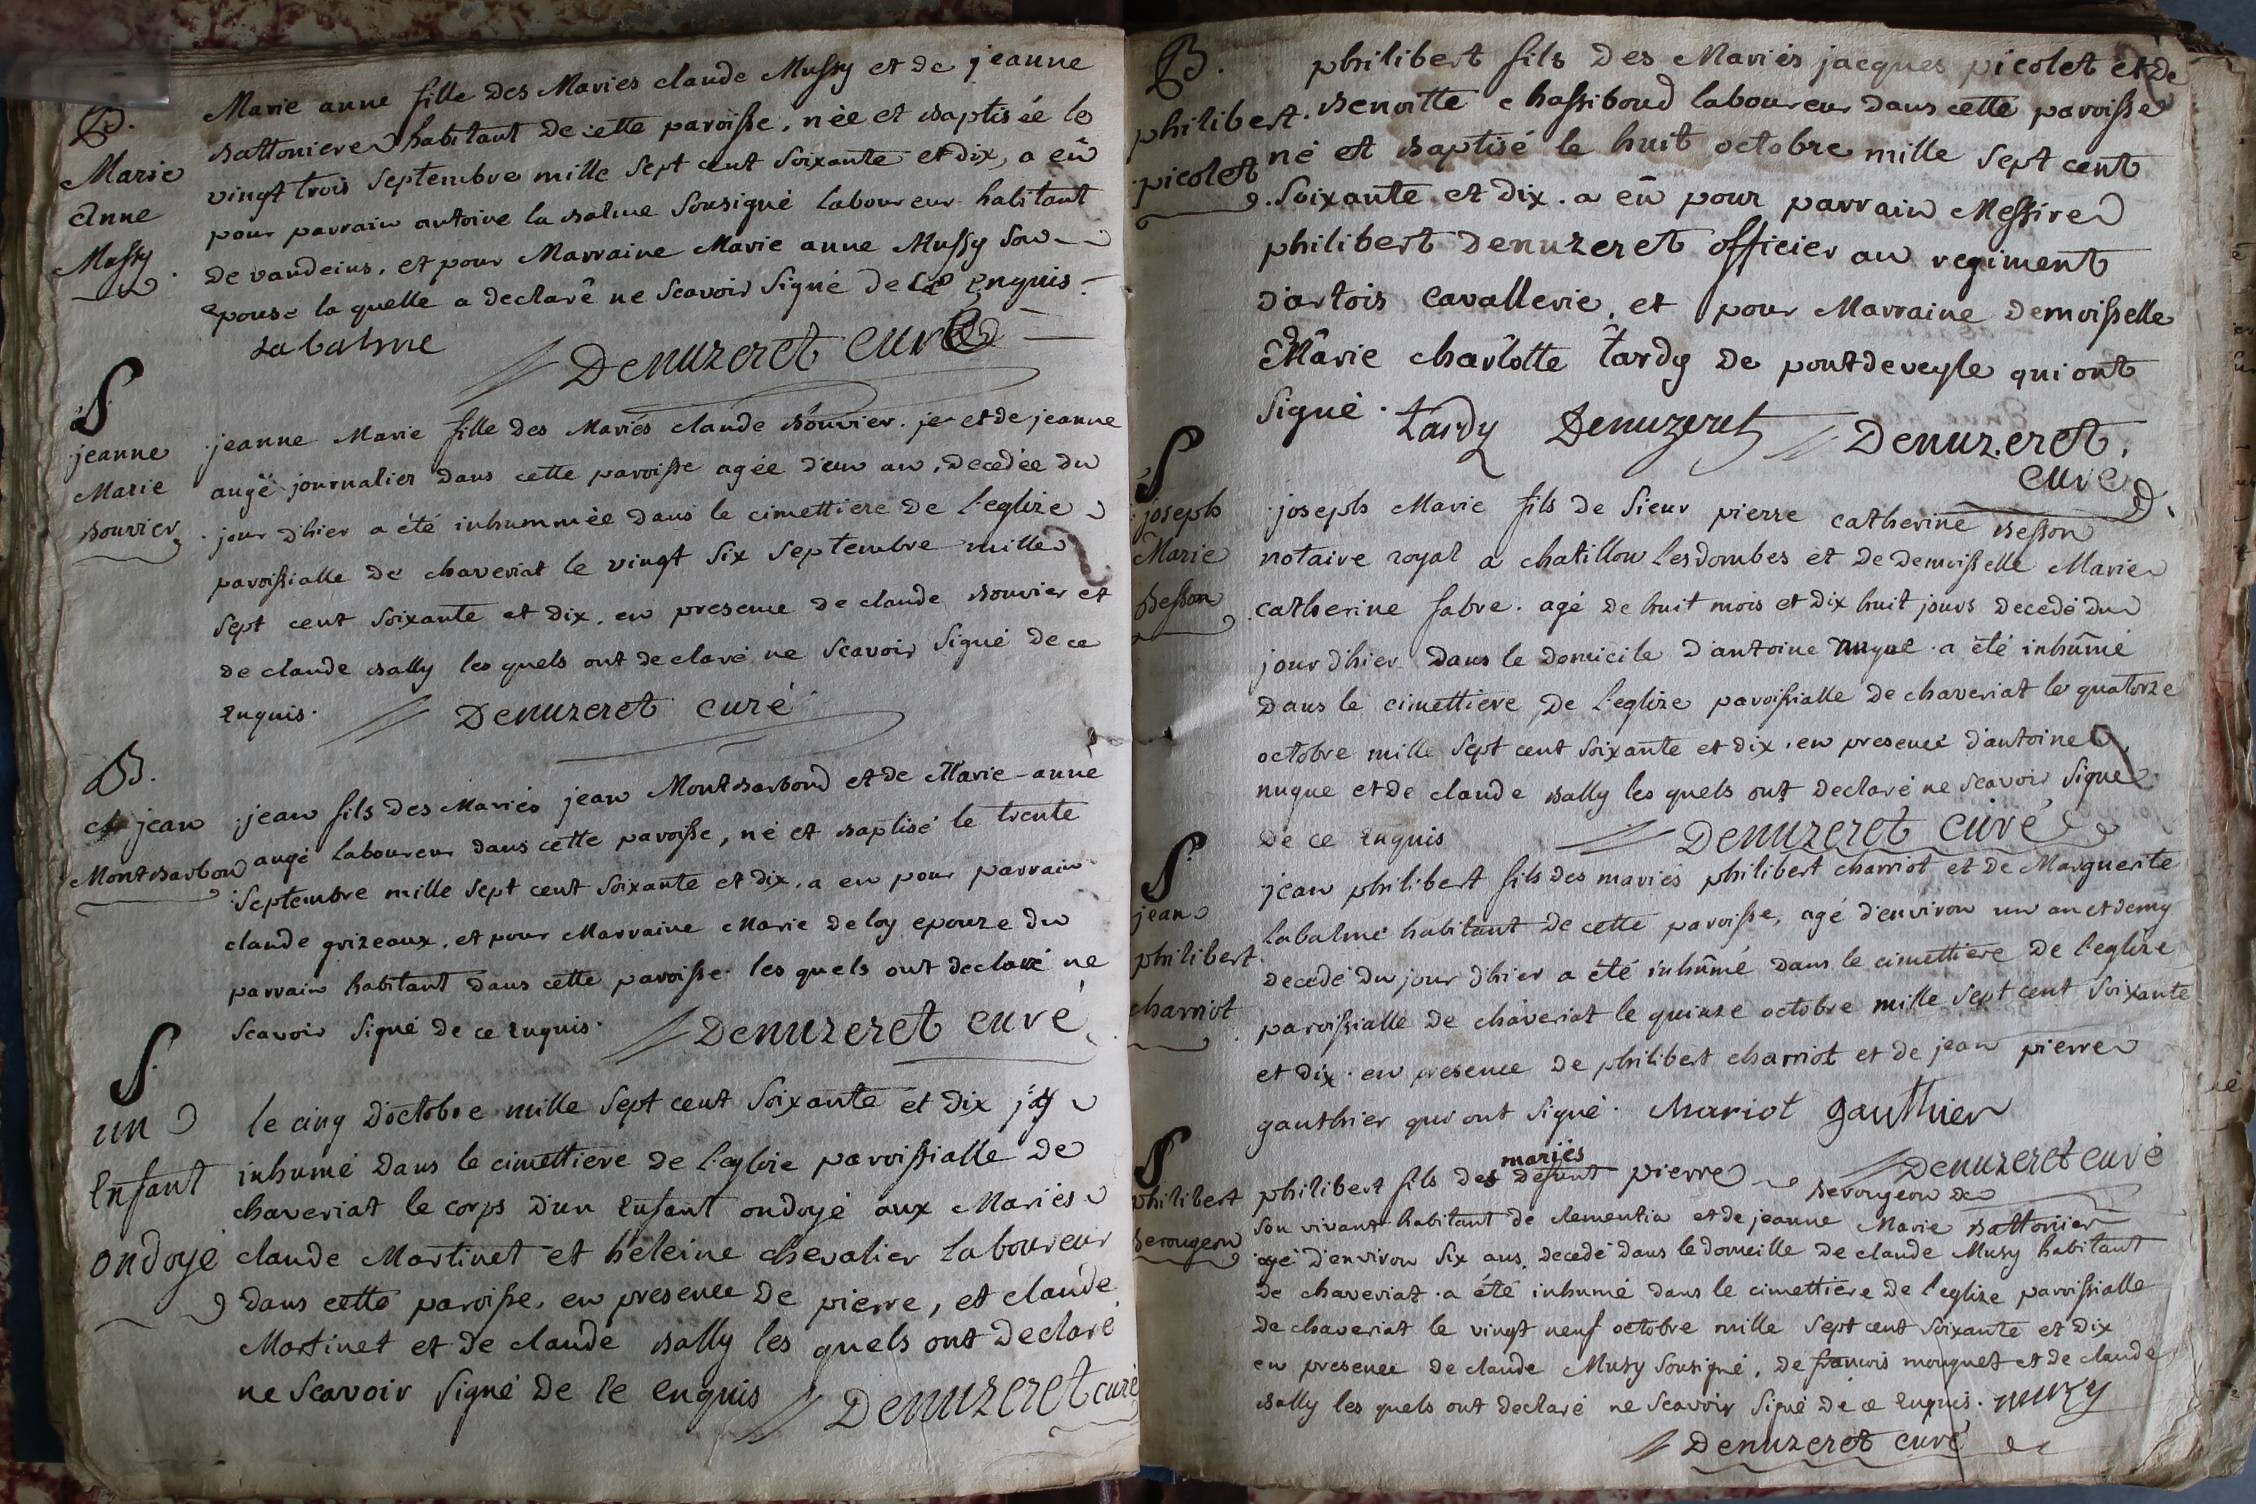 B.
Marie
anne
Mussy
Marie anne fille des Mariés claude Mussy et de jeanne
battoniere habitant de cette paroisse, née et baptisée le
vingt trois septembre mille sept cent soixante et dix, a eû
pour parrain antoine la balme sousigné laboureur habitant
de vandeins, et pour Marraine Marie anne Mussy son
epouse la quelle a declaré ne scavoir signé de ce enquis
La balme Denuzeret curé
S
jeanne
Marie
bouvier
jeanne Marie fille des Mariés claude bouvier je et de jeanne
augé journalier dans cette paroisse agée d'un an, decedée du
jour d'hier a été inhummée dans le cimettiere de l'eglize
paroissialle de chaveriat le vingt six septembre mille
sept cent soixante et dix, en presence de claude bouvier et
de claude bally les quels ont declaré ne scavoir signé de ce
enquis. Denuzeret curé
B.
jean
Montbarbon
jean fils des Mariés jean Montbarbond et de Marie-anne
augé laboureur dans cette paroisse, né et baptisé le trente
septembre mille sept cent soixante et dix, a eu pour parrain
claude grizeaux, et pour Marraine Marie deloy epouze du
parrain habitant dans cette paroisse les quels ont declaré ne
scavoir signé de ce enquis. Denuzeret curé
S.
un
enfant
ondoyé
le cinq d'octobre mille sept cent soixante et dix j'ay
inhumé dans le cimettiere de l'eglize paroissialle de
chaveriat le corps d'un enfant ondoyé aux Mariés
claude Martinet et heleine chevalier laboureur
dans cette paroisse, en presence de pierre, et claude
Martinet et de claude bally les quels ont declaré
ne scavoir signé de ce enquis Denuzeret curé
B.
philibert
picolet
philibert fils des Mariés jacques picolet et de
benoitte chassiboud laboureur dans cette paroisse
né et baptisé le huit octobre mille sept cent
soixante et dix. a eû pour parrain Messire
philibert Denuzeret officier au regiment
d'artois cavallerie, et pour Marraine demoisselle
Marie charlotte tardy de pontdeveyle qui ont
signé. Tardy Denuzeret Denuzeret,
curé
S
joseph
Marie
besson
joseph Marie fils de sieur pierre catherine besson
notaire royal a chatillon lesdombes et de demoisselle Marie
catherine fabre. agé de huit mois et dix huit jours decedé du
jour d'hier dans le domicile d'antoine nugue a été inhûmé
dans le cimettiere de l'eglize paroissialle de chaveriat le quatorze
octobre mille sept cent soixante et dix. en presence d'antoine
nugue et de claude bally les quels ont declaré ne scavoir signe
de ce enquis Denuzeret curé
S
jean
philibert
charriot
jean philibert fils des mariés philibert charriot et de Marguerite
labalme habitant de cette paroisse, agé d'environ un an et demy
decedé du jour d'hier a été inhûmé dans le cimettiere de l'eglize
paroissialle de chaveriat le quinze octobre mille sept cent soixante
et dix. en presence de philibert charriot et de jean pierre
gauthier qui ont signé. chariot gauthier
Denuzeret curé
S
philibert
berougeon
mariés
philibert fils des defunt pierre berougeon de
son vivant habitant de clementia et de jeanne Marie battonier
agé d'environ six ans, decedé dans le domicille de claude Musy habitant
de chaveriat a été inhumé dans le cimettiere de l'eglize paroissialle
de chaveriat le vingt neuf octobre mille sept cent soixante et dix
en presence de claude Musy sousigné, de francois monguet et de claude
bally les quels ont declaré ne scavoir signé de ce enquis. muzy
Denuzeret curé